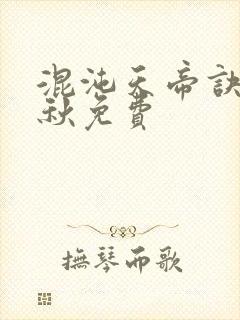 混沌天帝訣
秋免費
撫琴而歌